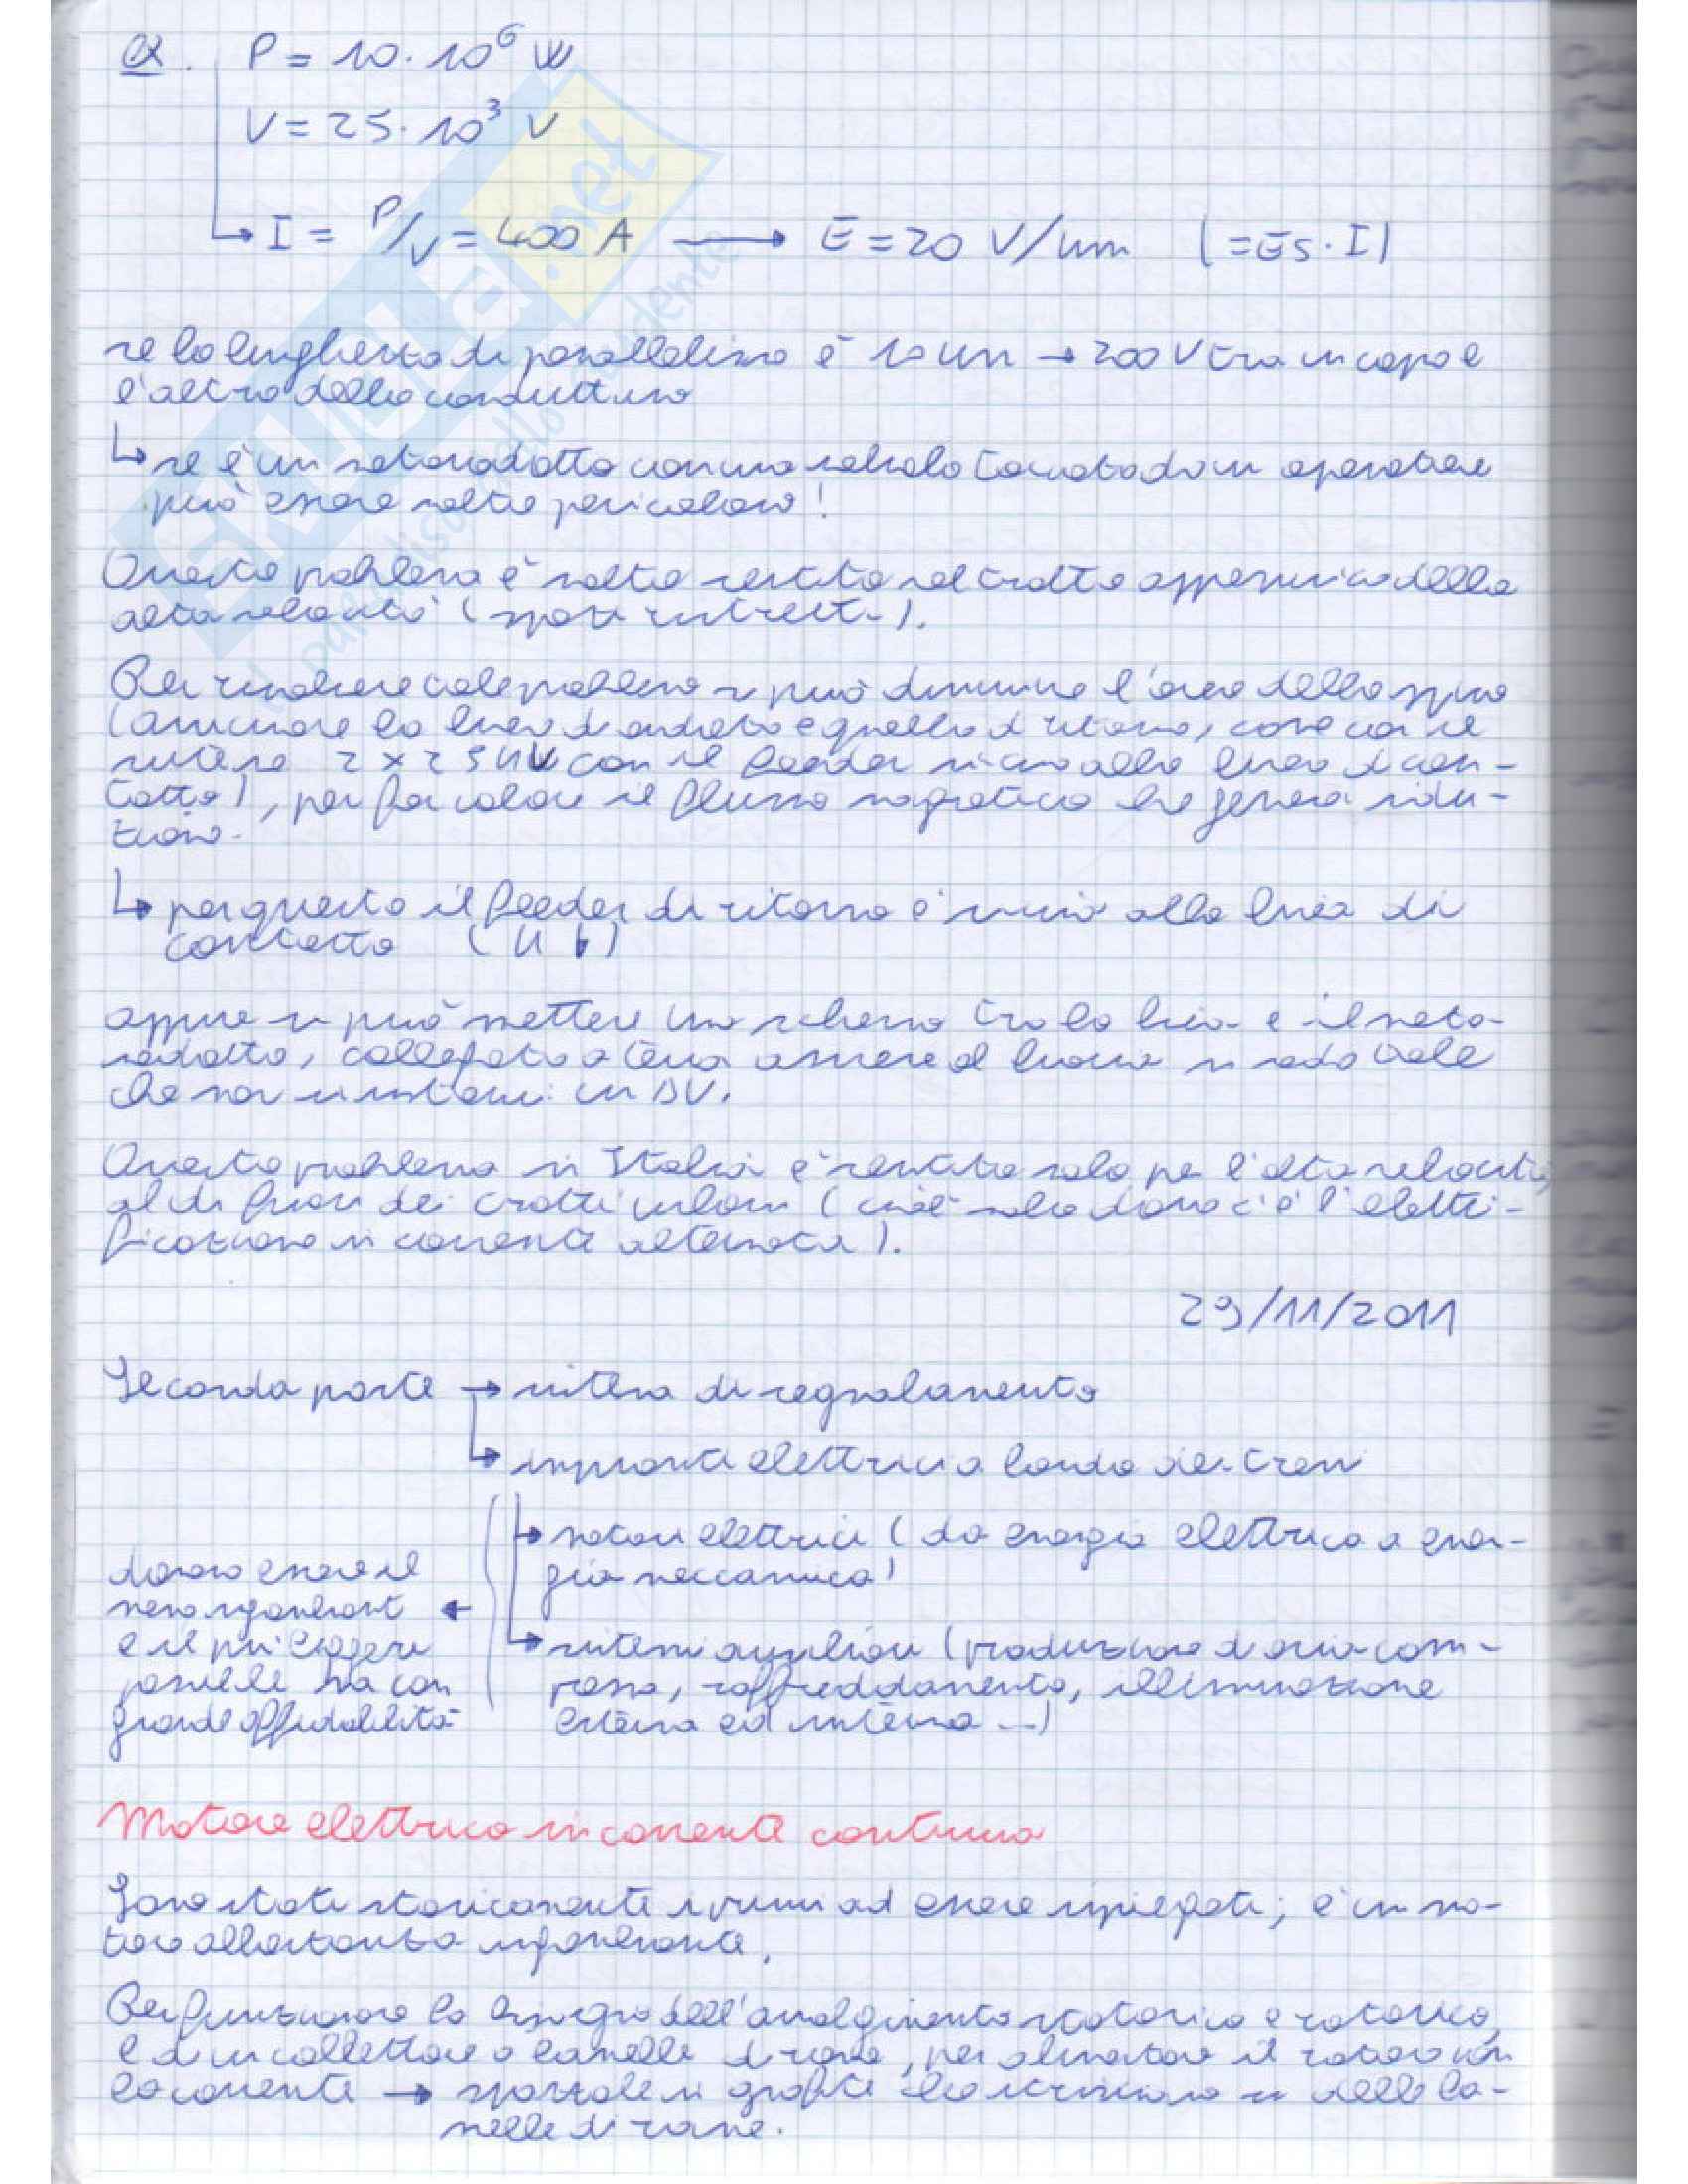 ex. P = 10·10⁶ W
V = 25·10³ V
I = P/V = 400 A → E = 20 V/km (= Es · I)
se la lunghezza di parallelismo è 10 km → 200 V tra un capo e
l'altro della conduttura
↳ se è un metanodotto con una valvola toccata da un operatore
può essere molto pericoloso!
Questo problema è molto sentito nel tratto appenninico della
alta velocità (spazi ristretti).
Per risolvere tale problema si può diminuire l'area della spira
(avvicinare la linea di andata e quella di ritorno, come con il
sistema 2 x 25 kV con il feeder vicino alla linea di con-
tatto), per far calare il flusso magnetico che genera indu-
zione.
↳ per questo il feeder di ritorno è vicino alla linea di
contatto
oppure si può mettere uno schermo tra la linea e il meta-
nodotto, collegato a terra assieme al binario in modo tale
che non si instauri un ΔV.
Questo problema in Italia è sentito solo per l'alta velocità,
al di fuori dei tratti urbani (cioè solo dove c'è l'elettri-
ficazione in corrente alternata).
29/11/2011
Seconda parte → sistema di segnalamento
↳ impianti elettrici a bordo dei treni
↳ motori elettrici (da energia elettrica a ener-
gia meccanica)
↳ sistemi ausiliari (produzione di aria com-
pressa, raffreddamento, illuminazione
esterna ed interna ...)
devono essere il
meno ingombranti ←
e il più leggeri
possibile ma con
grande affidabilità
Motore elettrico in corrente continua
Sono stati storicamente i primi ad essere impiegati; è un mo-
tore abbastanza ingombrante.
Per funzionare ha bisogno dell'avvolgimento statorico e rotorico,
e di un collettore a lamelle di rame, per alimentare il rotore con
la corrente → spazzole in grafite che strisciano su delle la-
melle di rame.
SKUOLA.net